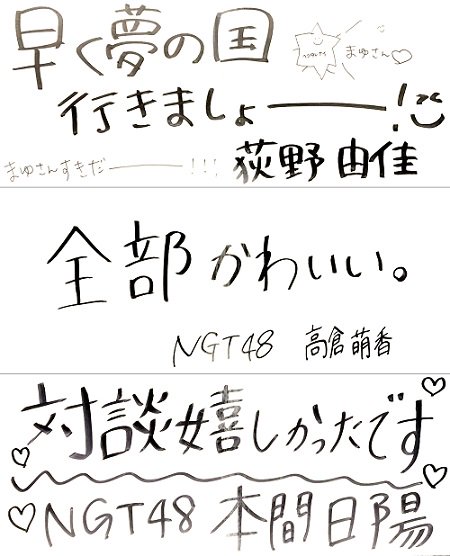 早く夢の国
まゆさん♡
行きましょーーー!
まゆさんすきだーーー!!!
荻野由佳
全部かわいい。
NGT48 高倉萌香
対談嬉しかったです
NGT48 本間日陽